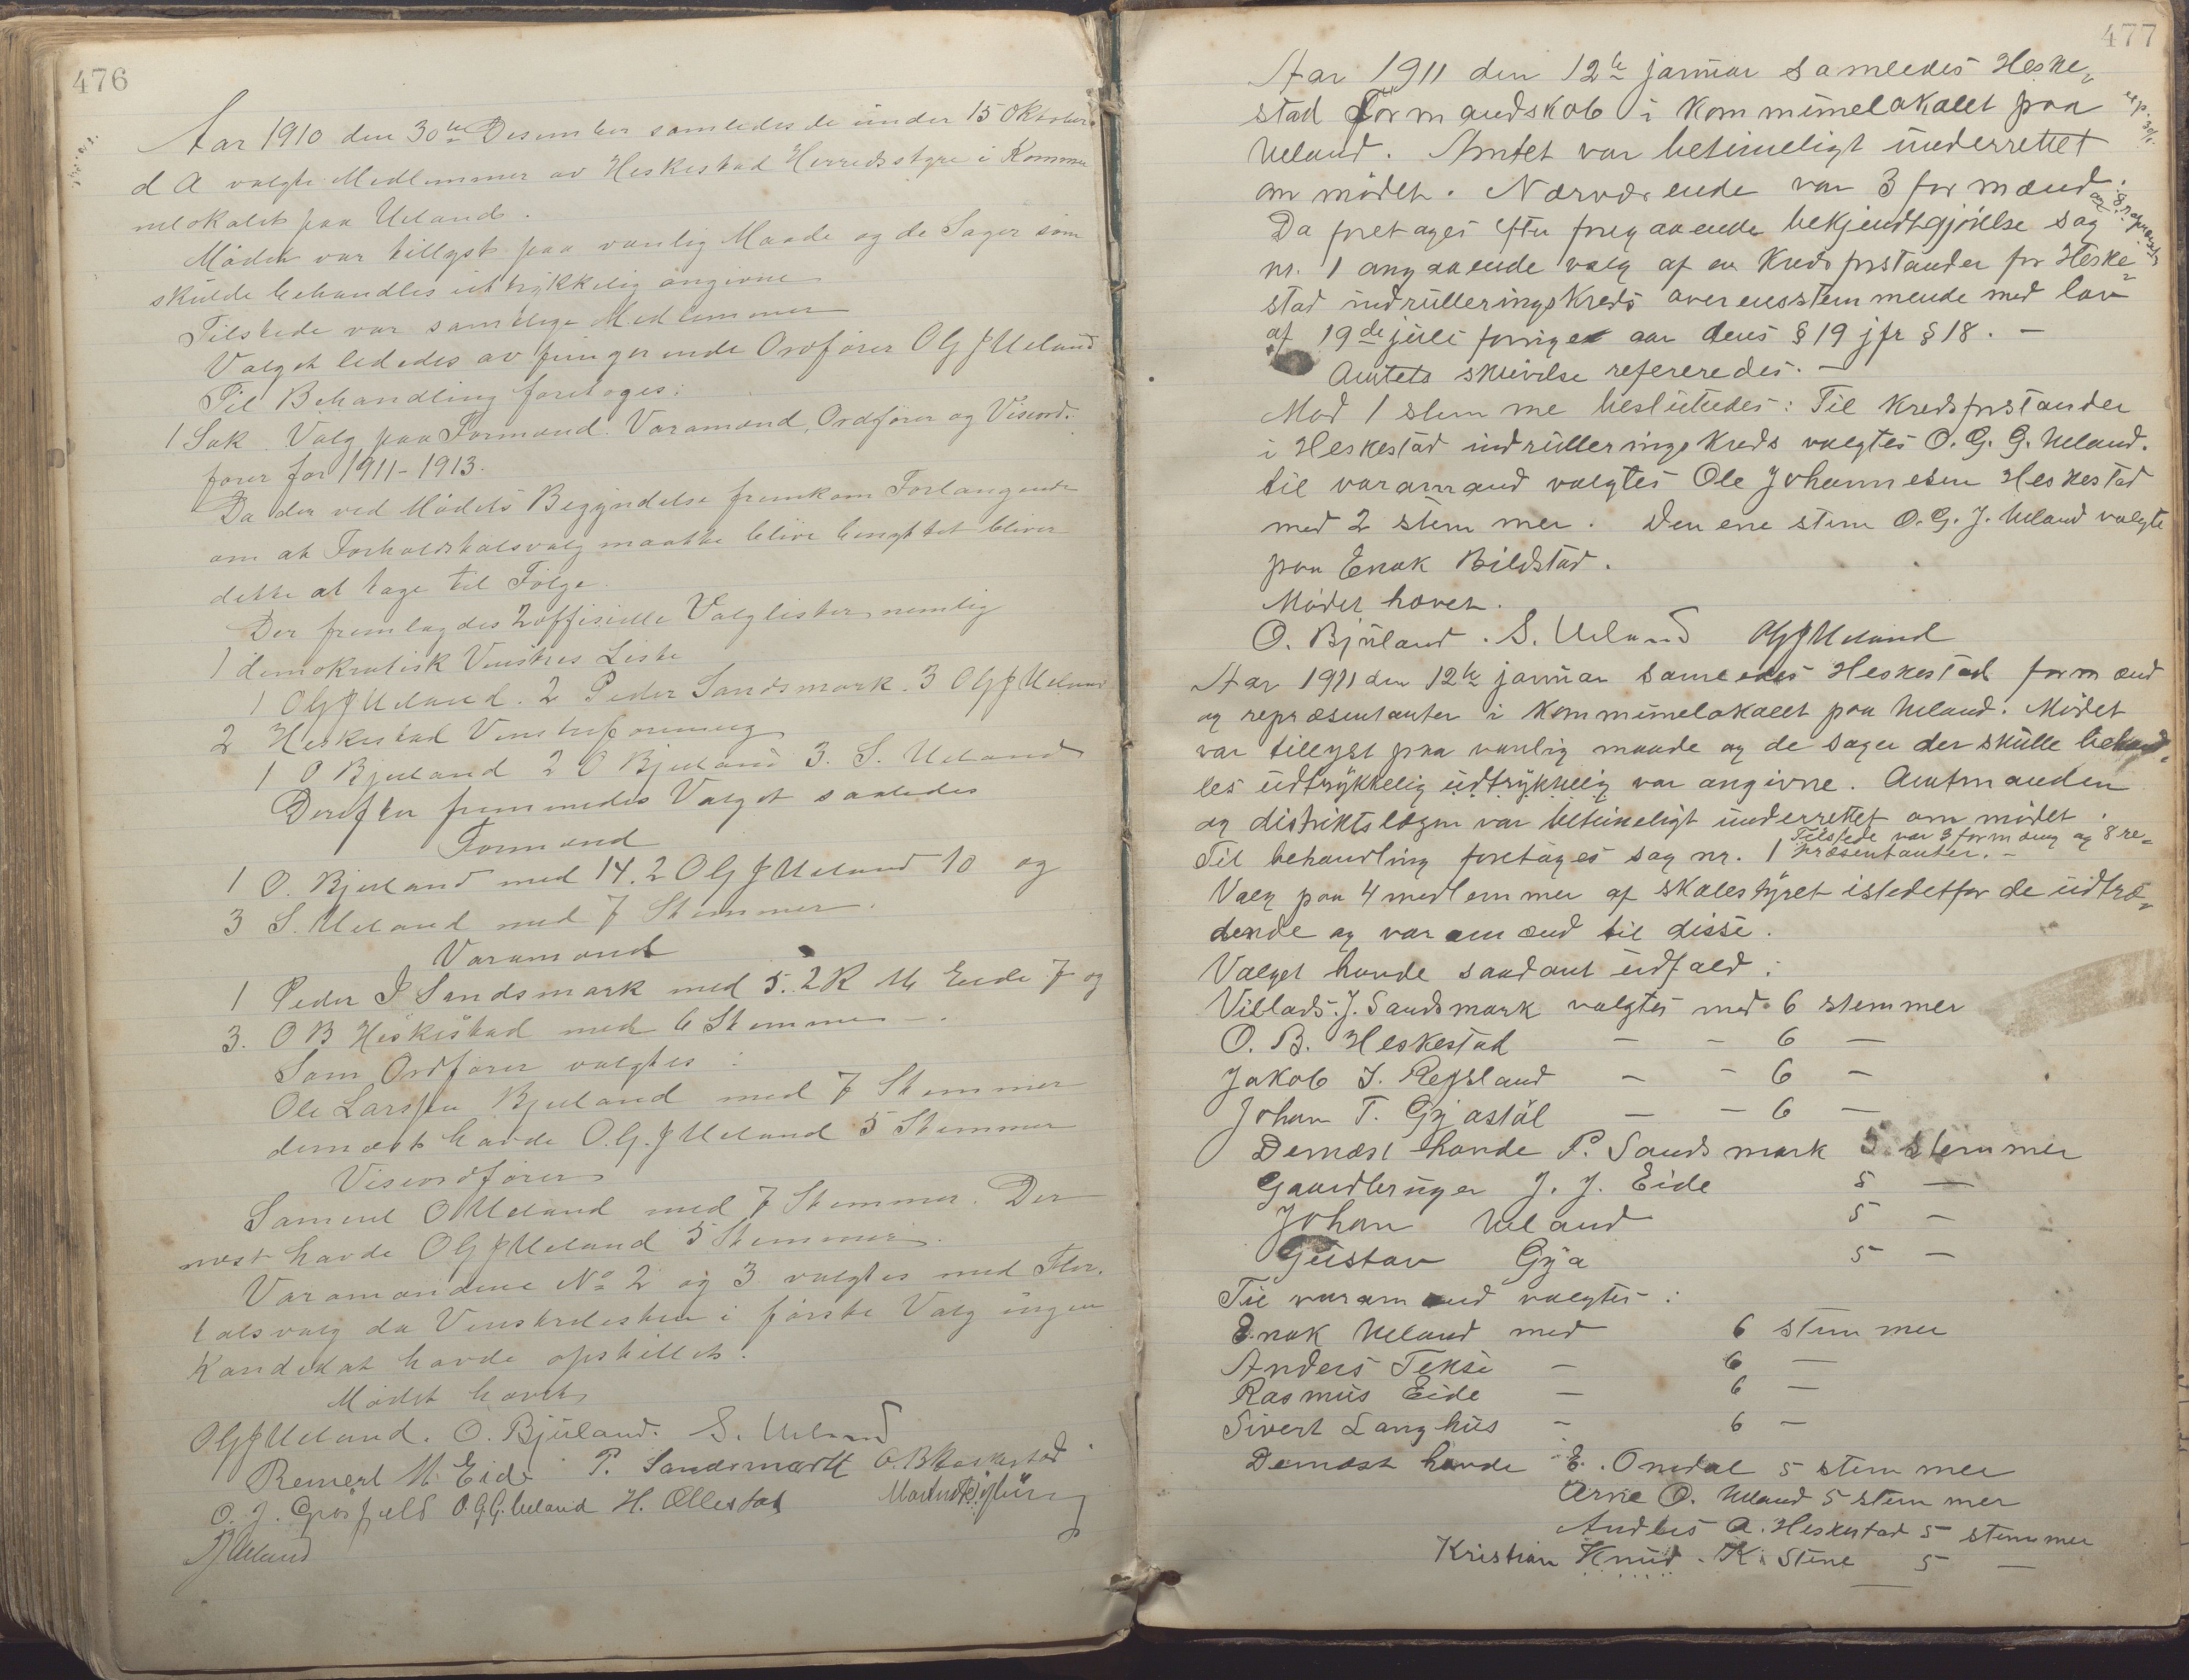 476
Aar 1910 den 30te Desember samledes de under 15 Oktober
d A valgte Medlemmer av Heskestad Herredsstyre i Kommu
nelokalet paa Ueland.
Mødet var tillyst paa vanlig Maade og de Sager som
skulde behandles uttrykkelig angivne
Tilstede var samtlige Medlemmer
Valget lededes av fungerende Ordfører OGJUeland
Til Behandling foretoges:
1 Sak. Valg paa Formænd. Varamænd, Ordfører og Viseord-
fører for 1911-1913.
Da der ved Mødets Begyndelse fremkom Forlangende
om at Forholdstalsvalg maatte blive benyttet bliver
dette at tage til Følge.
Der fremlagdes 2 offisielle Valglister nemlig
1 demokratisk Venstres Liste
1 OGJUeland. 2 Peder Sandsmark. 3 OGJUeland
2 Heskestad Venstreforening
1 O Bjuland 2 O Bjuland 3. S. Ueland
Derefter fremmedes Valget saaledes
Formænd
1 O. Bjuland med 14. 2 OGJUeland 10 og
3 S. Ueland med 7 Stemmer.
Varamænd
1 Peder S Sandsmark med 5. 2 R M Eide 7 og
3. O B Heskestad med 6 Stemmer.
Som Ordfører valgtes:
Ole Larssen Bjuland med 7 Stemmer
dernæst havde O.G.J Ueland 5 Stemmer
Viseordfører
Samuel O Ueland med 7 Stemmer. Der
næst havde OGJUeland 5 Stemmer.
Varamændene No 2 og 3 valgtes med Fler-
talsvalg da Venstrelisten i første Valg ingen
Kandidat havde opstillet.
Mødet hævet
OGJUeland. O. Bjuland. S. Ueland
Reinert M. Eide P. Sandsmark O. B Heskestad
O. J. Grøsfjeld O.G.G. Ueland H. Øllestad
JUeland
477
Aar 1911 den 12te januar samledes Heske-
stad Formandskab i Kommunelokalet paa
Ueland. Amtet var betimeligt underrettet
om mødet. Nærværende var 3 formænd.
Da foretages efter foregaaende bekjendtgjørelse sag
nr. 1 angaaende valg af en Kredsforstander for Heske-
stad indrulleringskreds overensstemmende med lov
af 19de juli forrige aar dens § 19 jfr § 18. —
Amtets skrivelse refereredes. —
Mod 1 stemme besluttedes: Til kredsforstander
i Heskestad indrulleringskreds valgtes O. G. G. Ueland.
til varamand valgtes Ole Johannesen Heskestad
med 2 stemmer. Den ene stem O. G. J. Ueland valgte
paa Enok Bilstad.
Mødet hævet.
O. Bjuland. S. Ueland OGJUeland
Aar 1911 den 12te januar samledes Heskestad formænd
og repræsentanter i Kommunelokalet paa Ueland. Mødet
var tillyst paa vanlig maade og de sager der skulle behand-
les udtrykkelig udtrykkelig var angivne. Amtmanden
og distriktslægen var betimeligt underrettet om mødet.
Tilstede var 3 formæng og 8 re-
Til behandling foretages sag nr. 1 præsentanter. —
Valg paa 4 medlemmer af skolestyret istedetfor de udtræ-
dende og varamænd til disse.
Valget havde saadant udfald:
Villads. J. Sandsmark valgtes med 6 stemmer
O. B. Heskestad — — 6 —
Jakob I. Repsland — — 6 —
Johan T. Gyastøl — — 6 —
Dernæst havde P. Sandsmark 5 stemmer
Gaardbruger J. J. Eide 5 —
Johan Ueland 5 —
Gustav Gya 5 —
Til varamænd valgtes:
Enok Ueland med 6 stemmer
Anders Tekse — 6 —
Rasmus Eide — 6 —
Sivert Langhus — 6 —
Dernæst havde E. Omdal 5 stemmer
Arne O. Ueland 5 stemmer
Andreas A. Heskestad 5 stemmer
Kristian Knud. K. Stene 5 —